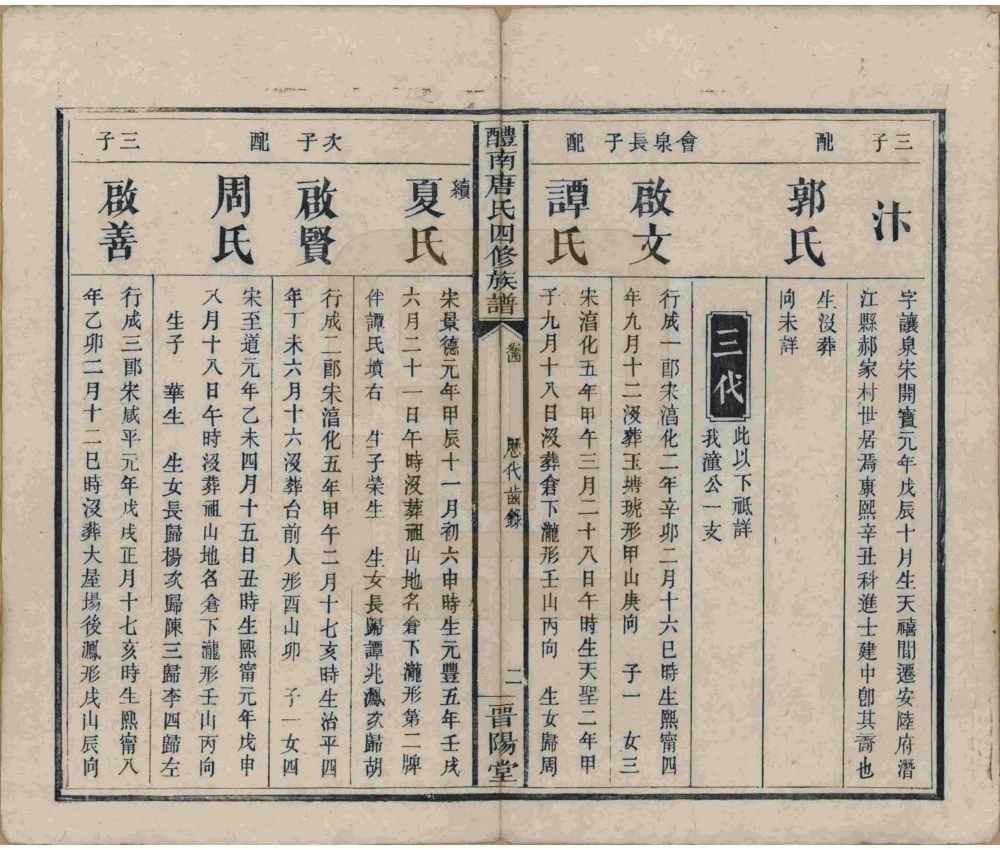 三子
汴
字讓泉宋開寶元年戊辰十月生天禧間遷安陸府潛
江縣郝家村世居焉康熙辛丑科進士建中卽其裔也
配
郭氏
生沒葬
向未詳
三代
此以下祗詳
我潼公一支
會泉長子
啟文
行成一郎宋淊化二年辛卯二月十六巳時生熙甯四
年九月十二沒葬玉塘琥形甲山庚向 子一 女三
配
譚氏
宋淊化五年甲午三月二十八日午時生天聖二年甲
子九月十八日沒葬倉下瀧形壬山丙向 生女歸周
醴南唐氏四修族譜
歷代齒錄
二
晉陽堂
續
夏氏
宋景德元年甲辰十一月初六申時生元豐五年壬戌
六月二十一日午時沒葬祖山地名倉下瀧形第二牌
伴譚氏墳右 生子榮生 生女長歸譚兆鳳次歸胡
次子
啟賢
行成二郎宋淊化五年甲午二月十七亥時生治平四
年丁未六月十六沒葬台前人形酉山卯 子一女四
配
周氏
宋至道元年乙未四月十五日丑時生熙甯元年戊申
八月十八日午時沒葬祖山地名倉下瀧形壬山丙向
生子 華生 生女長歸楊次歸陳三歸李四歸左
三子
啟善
行成三郎宋咸平元年戊戌正月十七亥時生熙甯八
年乙卯二月十二巳時沒葬大屋場後鳳形戌山辰向